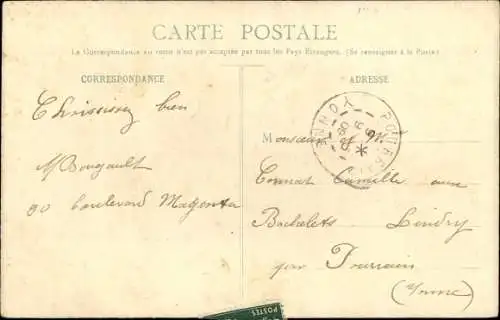 CARTE POSTALE
La Correspondance au recto n'est pas acceptée par tous les Pays Étrangers. (Se renseigner à la Poste)
CORRESPONDANCE
ADRESSE
bien
M Bougault
90 boulevard Magenta
Monsieur et M
Connat Camille aux
Bachelets Lindry
par Pourrain
(Yonne)
POSTES